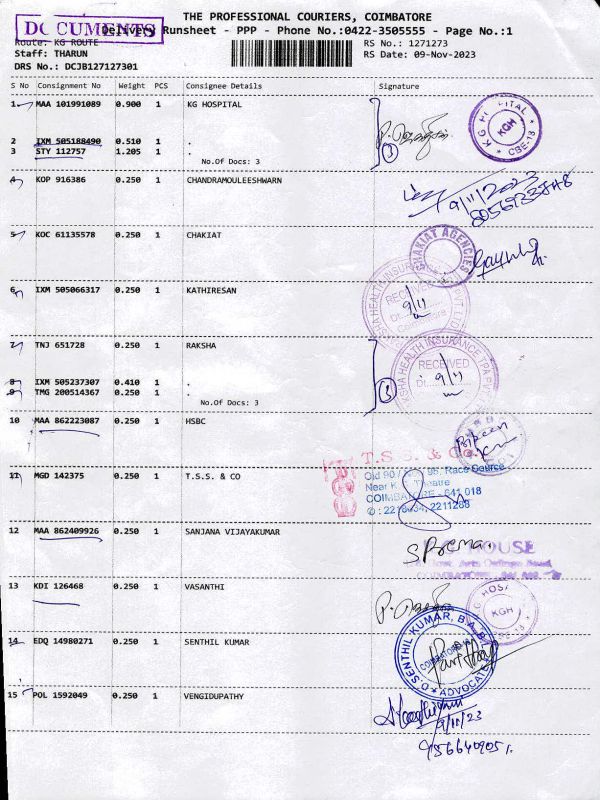 THE PROFESSIONAL COURIERS, COIMBATORE
DOCUMENTS
Delivery Runsheet - PPP - Phone No.:0422-3505555 - Page No.:1
Route: KG ROUTE
RS No.: 1271273
Staff: THARUN
RS Date: 09-Nov-2023
DRS No.: DCJB127127301
S No Consignment No Weight PCS Consignee Details Signature
1 MAA 101991089 0.900 1 KG HOSPITAL
KG HOSPITAL
KGH
CBE-18
2 IXM 505188490 0.510 1 .
3 STY 112757 1.205 1 .
No.Of Docs: 3
3
4 KOP 916386 0.250 1 CHANDRAMOULEESHWARN
9/11/2023
5 KOC 61135578 0.250 1 CHAKIAT
CHAKIAT AGENCIES
6 IXM 505066317 0.250 1 KATHIRESAN
RECEIVED
9/11
Coimbatore
7 TNJ 651728 0.250 1 RAKSHA
RAKSHA HEALTH INSURANCE TPA PVT LTD
RECEIVED
Dt. 9/11
8 IXM 505237307 0.410 1 .
9 TMG 200514367 0.250 1 .
No.Of Docs: 3
3
10 MAA 862223087 0.250 1 HSBC
11 MGD 142375 0.250 1 T.S.S. & CO
T.S.S. & Co.
Old 90 / No. 95, Race Course
Near K.G. Theatre
COIMBATORE - 641 018
: 2218034, 2211288
12 MAA 862409926 0.250 1 SANJANA VIJAYAKUMAR
HOUSE
13 KDI 126468 0.250 1 VASANTHI
KGH
14 EDQ 14980271 0.250 1 SENTHIL KUMAR
D.SENTHIL KUMAR, B.A.B.L
COIMBATORE
ADVOCATE
15 POL 1592049 0.250 1 VENGIDUPATHY
9/11/23